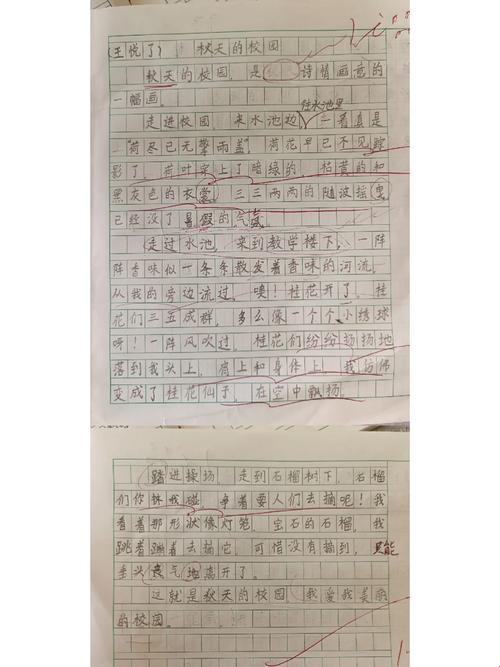 (王悦了) 秋天的校园
秋天的校园，是 诗情画意的
一幅画。
往水池里
走进校园，来水池边，一看真是
“荷尽已无擎雨盖”，荷花早已不见踪
影了，荷叶穿上了暗绿的，枯黄的和
黑灰色的衣裳，三三两两的随波摇曳
已经没了暑假的气
走过水池，来到教学楼下，一阵
阵香味似一条条散发着香味的河流
从我的旁边流过。噢！桂花开了，桂
花们三五成群，多么像一个个小绣球
呀！一阵风吹过，桂花们纷纷扬扬地
落到我头上，肩上和身体上，我仿佛
变成了桂花仙子，在空中飘扬。
踏进操场，走到石榴树下，石榴
们你 我碰，争着要人们去摘呢！我
看着那形状像灯笼，宝石的石榴，我
跳着蹦着去摘它，可惜没有摘到，只能
垂头丧气地离开了。
这就是秋天的校园，我爱我美丽
的校园。